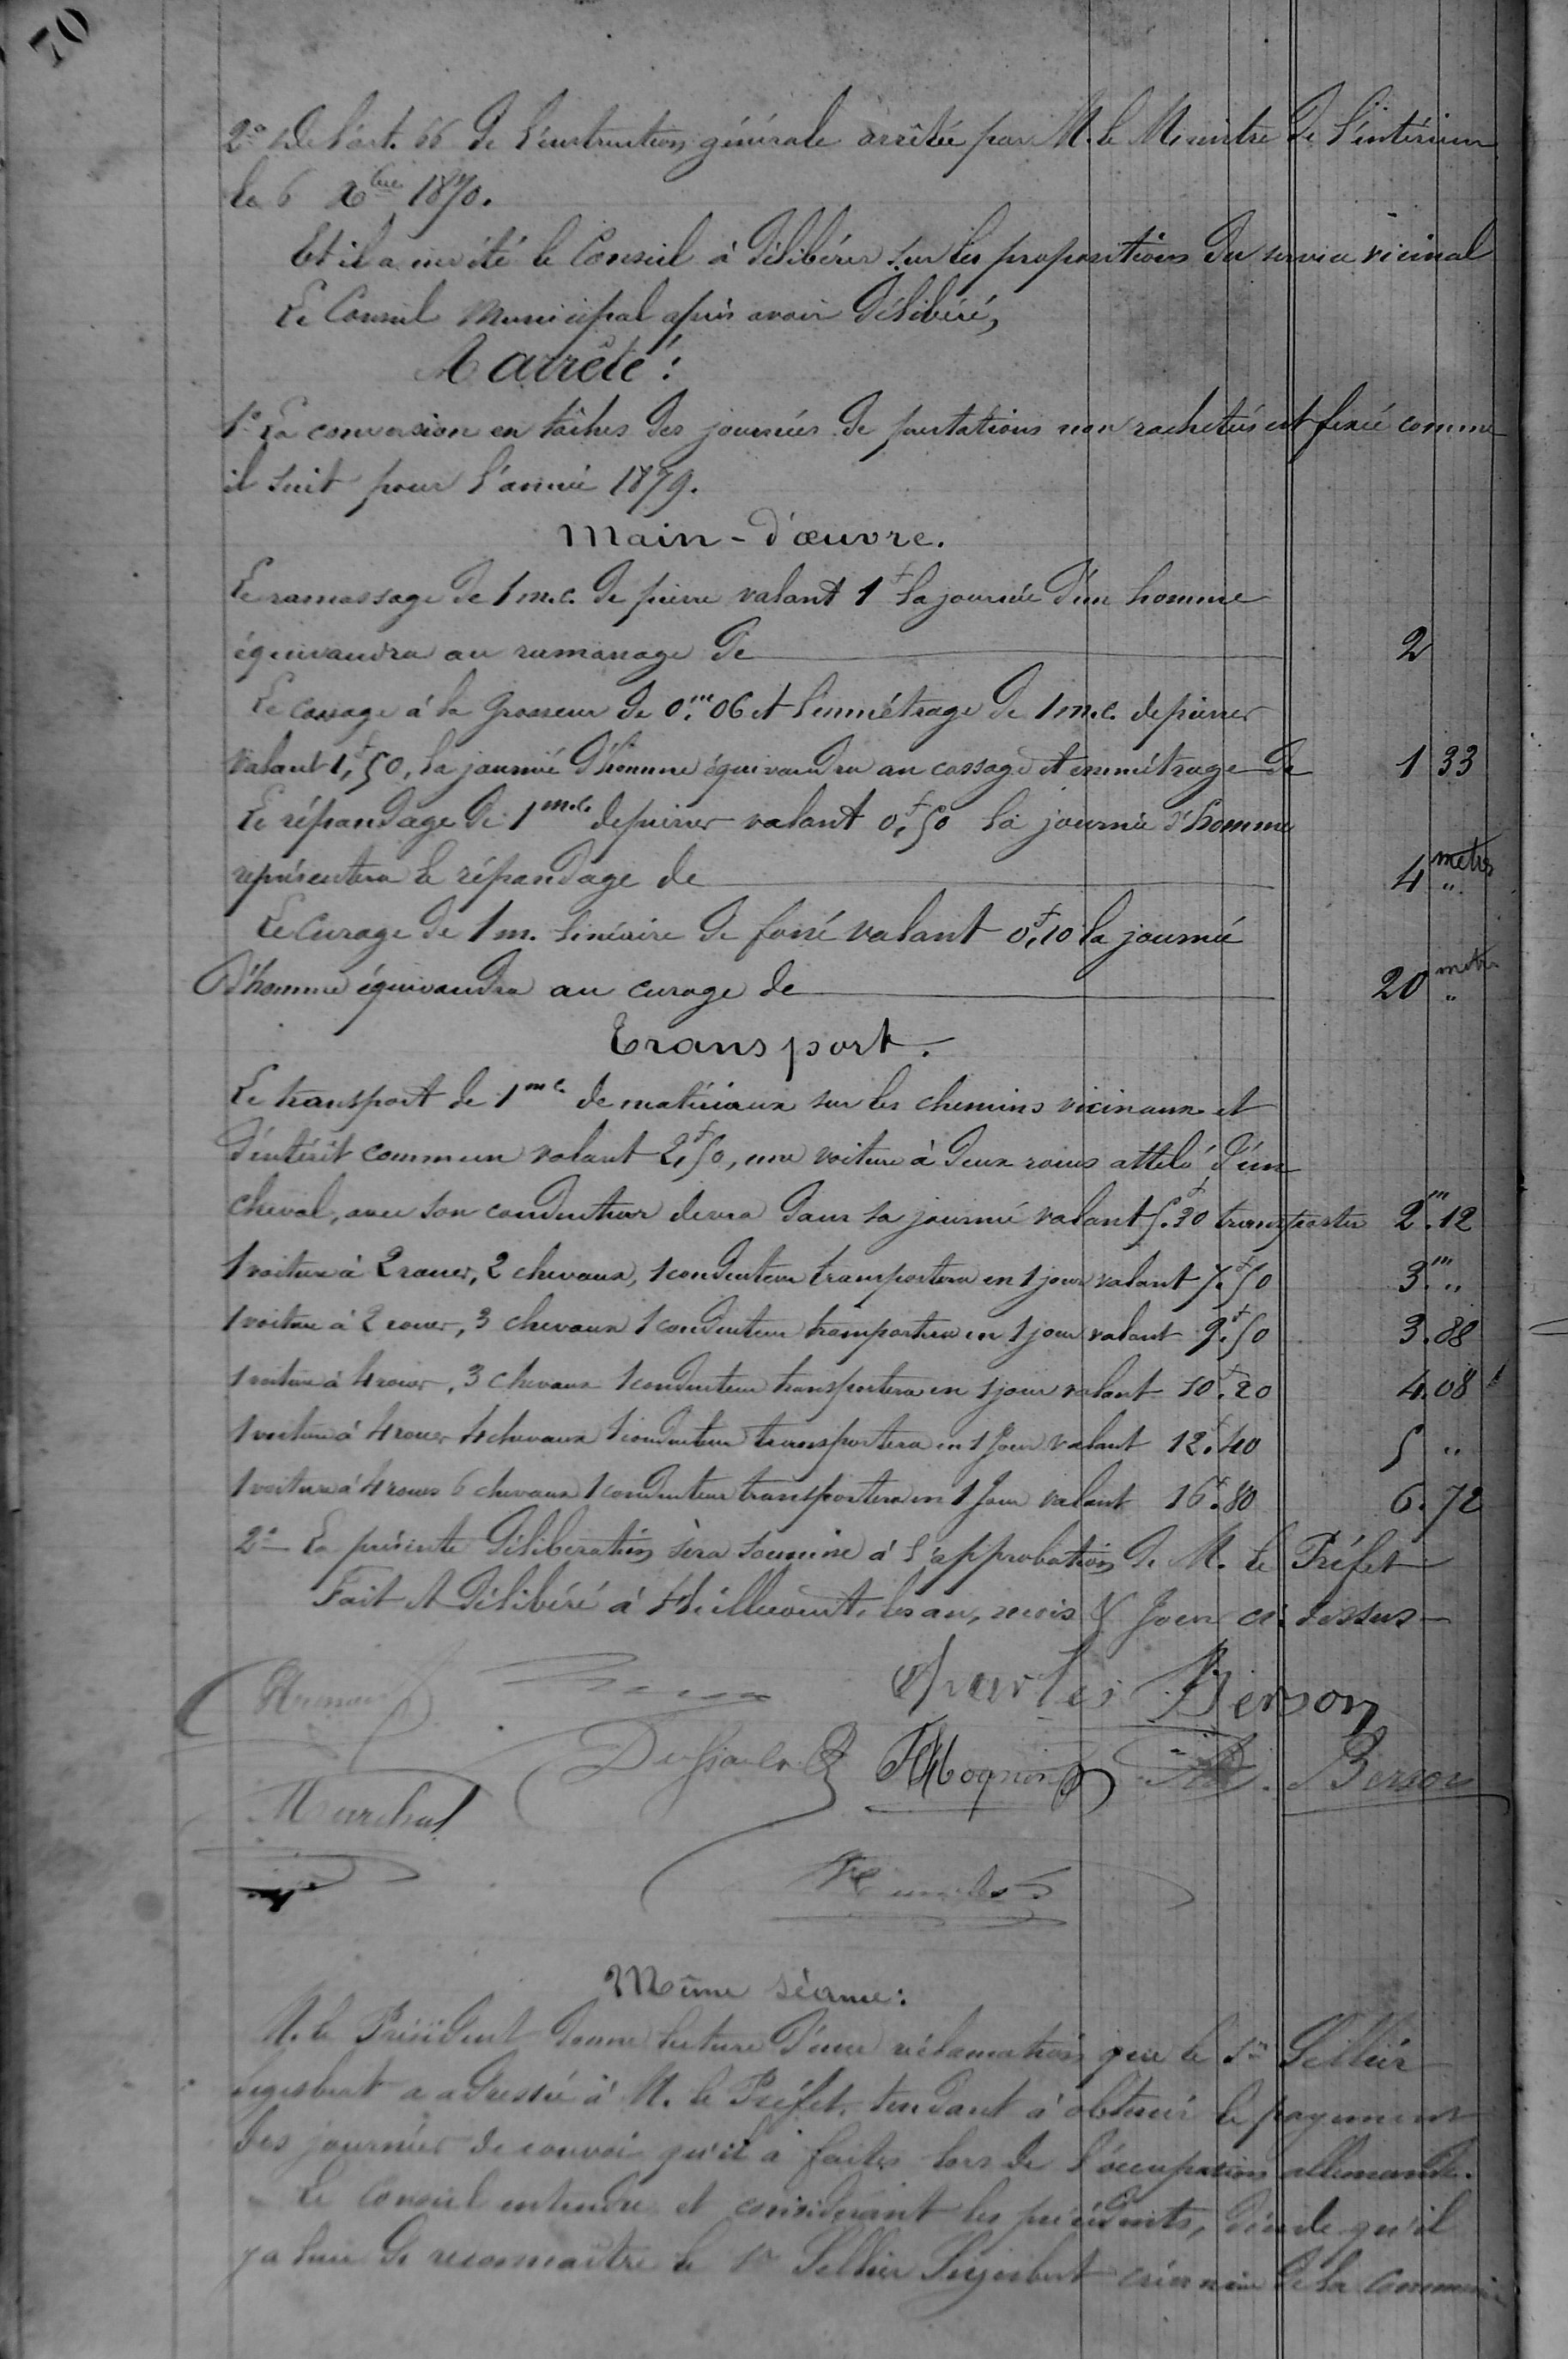 70
2° De l'art. 66 de l'instruction générale arrêtée par M. le Ministre de l'intérieur
le 6 Xbre 1870.
Et il a invité le Conseil à délibérer sur les propositions du service vicinal
Le Conseil Municipal après avoir délibéré,
A arrêté :
1° La conversion en tâches des journées de prestations non rachetées est fixée comme
il suit pour l'année 1879.
Main-d'œuvre.
Le ramassage de 1 m.c. de pierre valant 1f la journée d'un homme
équivaudra au ramassage de 2
Le cassage à la grosseur de 0.m06 et l'emmétrage de 1 m.c. de pierres
valant 1f,50, la journée d'homme équivaudra au cassage et emmétrage de 1 33
Le répandage de 1 m.c. de pierres valant 0f,50 la journée d'homme
représentera le répandage de 4 mètres "
Le curage de 1 m. linéaire de fossé valant 0f,10 la journée
d'homme équivaudra au curage de 20 mètres "
Transport.
Le transport de 1 mc de matériaux sur les chemins vicinaux et
d'intérêt commun valant 2f,50, une voiture à deux roues attelé d'un
cheval, avec son conducteur devra dans sa journée valant 5f.30 transporter 2m.12
1 voiture à 2 roues, 2 chevaux, 1 conducteur transportera en 1 jour valant 7f.50 3m. "
1 voiture à 2 roues, 3 chevaux 1 conducteur transportera en 1 jour valant 9f.50 3.88
1 voiture à 4 roues, 3 chevaux 1 conducteur transportera en 1 jour valant 10f.20 4.08
1 voiture à 4 roues 4 chevaux 1 conducteur transportera en 1 Jour valant 12f.40 5 "
1 voiture à 4 roues 6 chevaux 1 conducteur transportera en 1 Jour valant 16f.80 6.72
2° La présente délibération sera soumise à l'approbation de M. le Préfet
Fait et délibéré à Heillecourt, les an, mois & Jour ci-dessus
Charles Berson
Mognion Berson
Marchal
Même séance :
M. le Président donne lecture d'une réclamation que le Sr Sellier
Sigisbert a adressée à M. le Préfet, tendant à obtenir le payement
des journées de convoi qu'il a faites lors de l'occupation allemande.
Le Conseil entendu et considérant les précédents, décide qu'il
y a lieu de reconnaître le Sr Sellier Sigisbert créancier de la commune